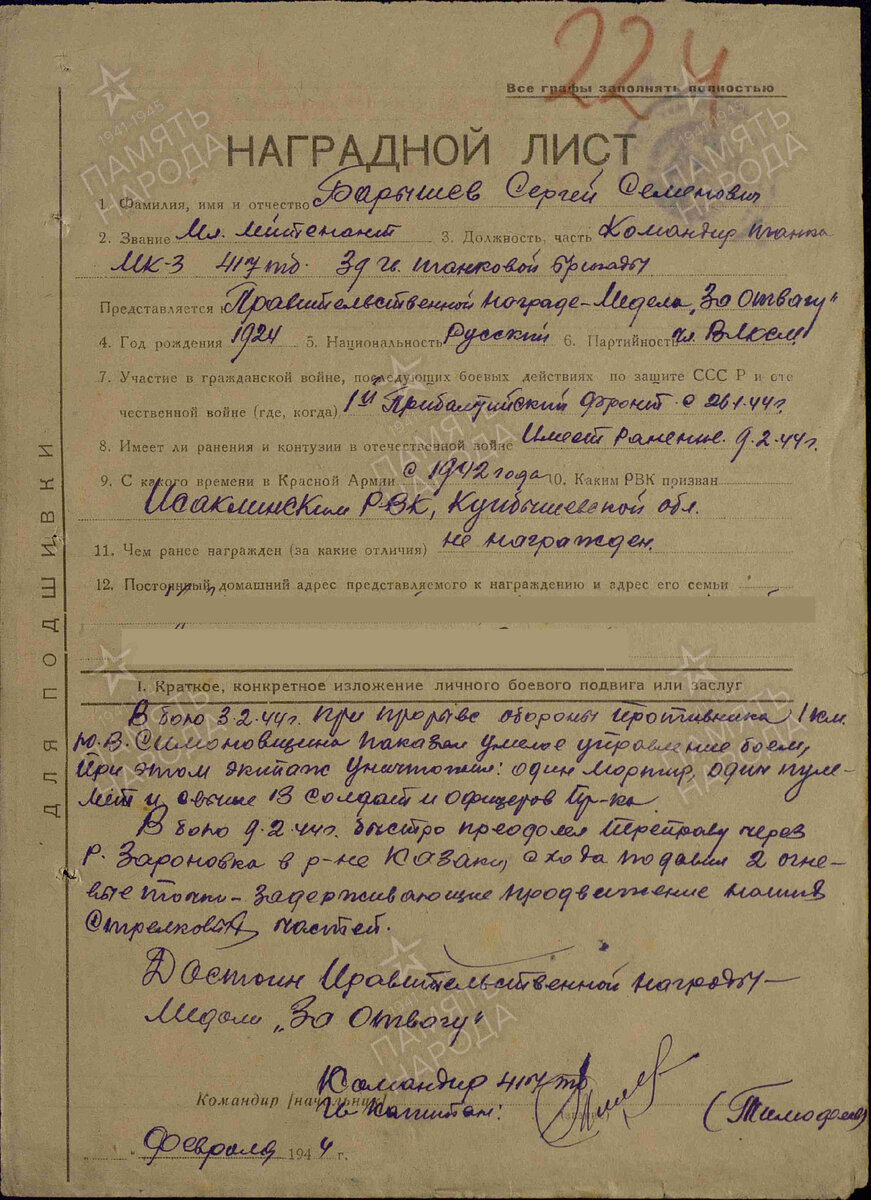 224
Все графы заполнять полностью
НАГРАДНОЙ ЛИСТ
1. Фамилия, имя и отчество Барышев Сергей Семенович
2. Звание Мл. лейтенант 3. Должность, часть Командир танка
МК-3 417тб. 39 гв. танковой бригады
Представляется к Правительственной награде - Медель „За Отвагу"
4. Год рождения 1924 5. Национальность Русский 6. Партийность чл. ВЛКСМ
7. Участие в гражданской войне, последующих боевых действиях по защите СССР и оте
чественной войне (где, когда) 1й Прибалтийский фронт с 26.1.44г.
8. Имеет ли ранения и контузии в отечественной войне Имеет ранение 9.2.44г.
9. С какого времени в Красной Армии с 1942 года 10. Каким РВК призван
Исаклинским РВК, Куйбышевской обл.
11. Чем ранее награжден (за какие отличия) не награжден.
12. Постоянный домашний адрес представляемого к награждению и адрес его семьи
I. Краткое, конкретное изложение личного боевого подвига или заслуг
В бою 3.2.44г. при прорыве обороны противника 1 км.
Ю.В. Симоновщина показал умелое управление боем,
При этом экипаж уничтожил: один мортир, один пуле-
мет и свыше 13 солдат и офицеров пр-ка.
В бою 9.2.44г. быстро преодолел переправу через
р. Зароновка в р-не Казаки, с хода подавил 2 огне-
вые точки - задерживающие продвижение наших
стрелковых частей.
Достоин Правительственной награды -
Медали „За Отвагу"
Командир 417 тб
Командир [начальник]
Гв. Капитан:
(Тимофеев)
Февраля 1944 г.
ДЛЯ ПОДШИВКИ
1941-1945
ПАМЯТЬ
НАРОДА